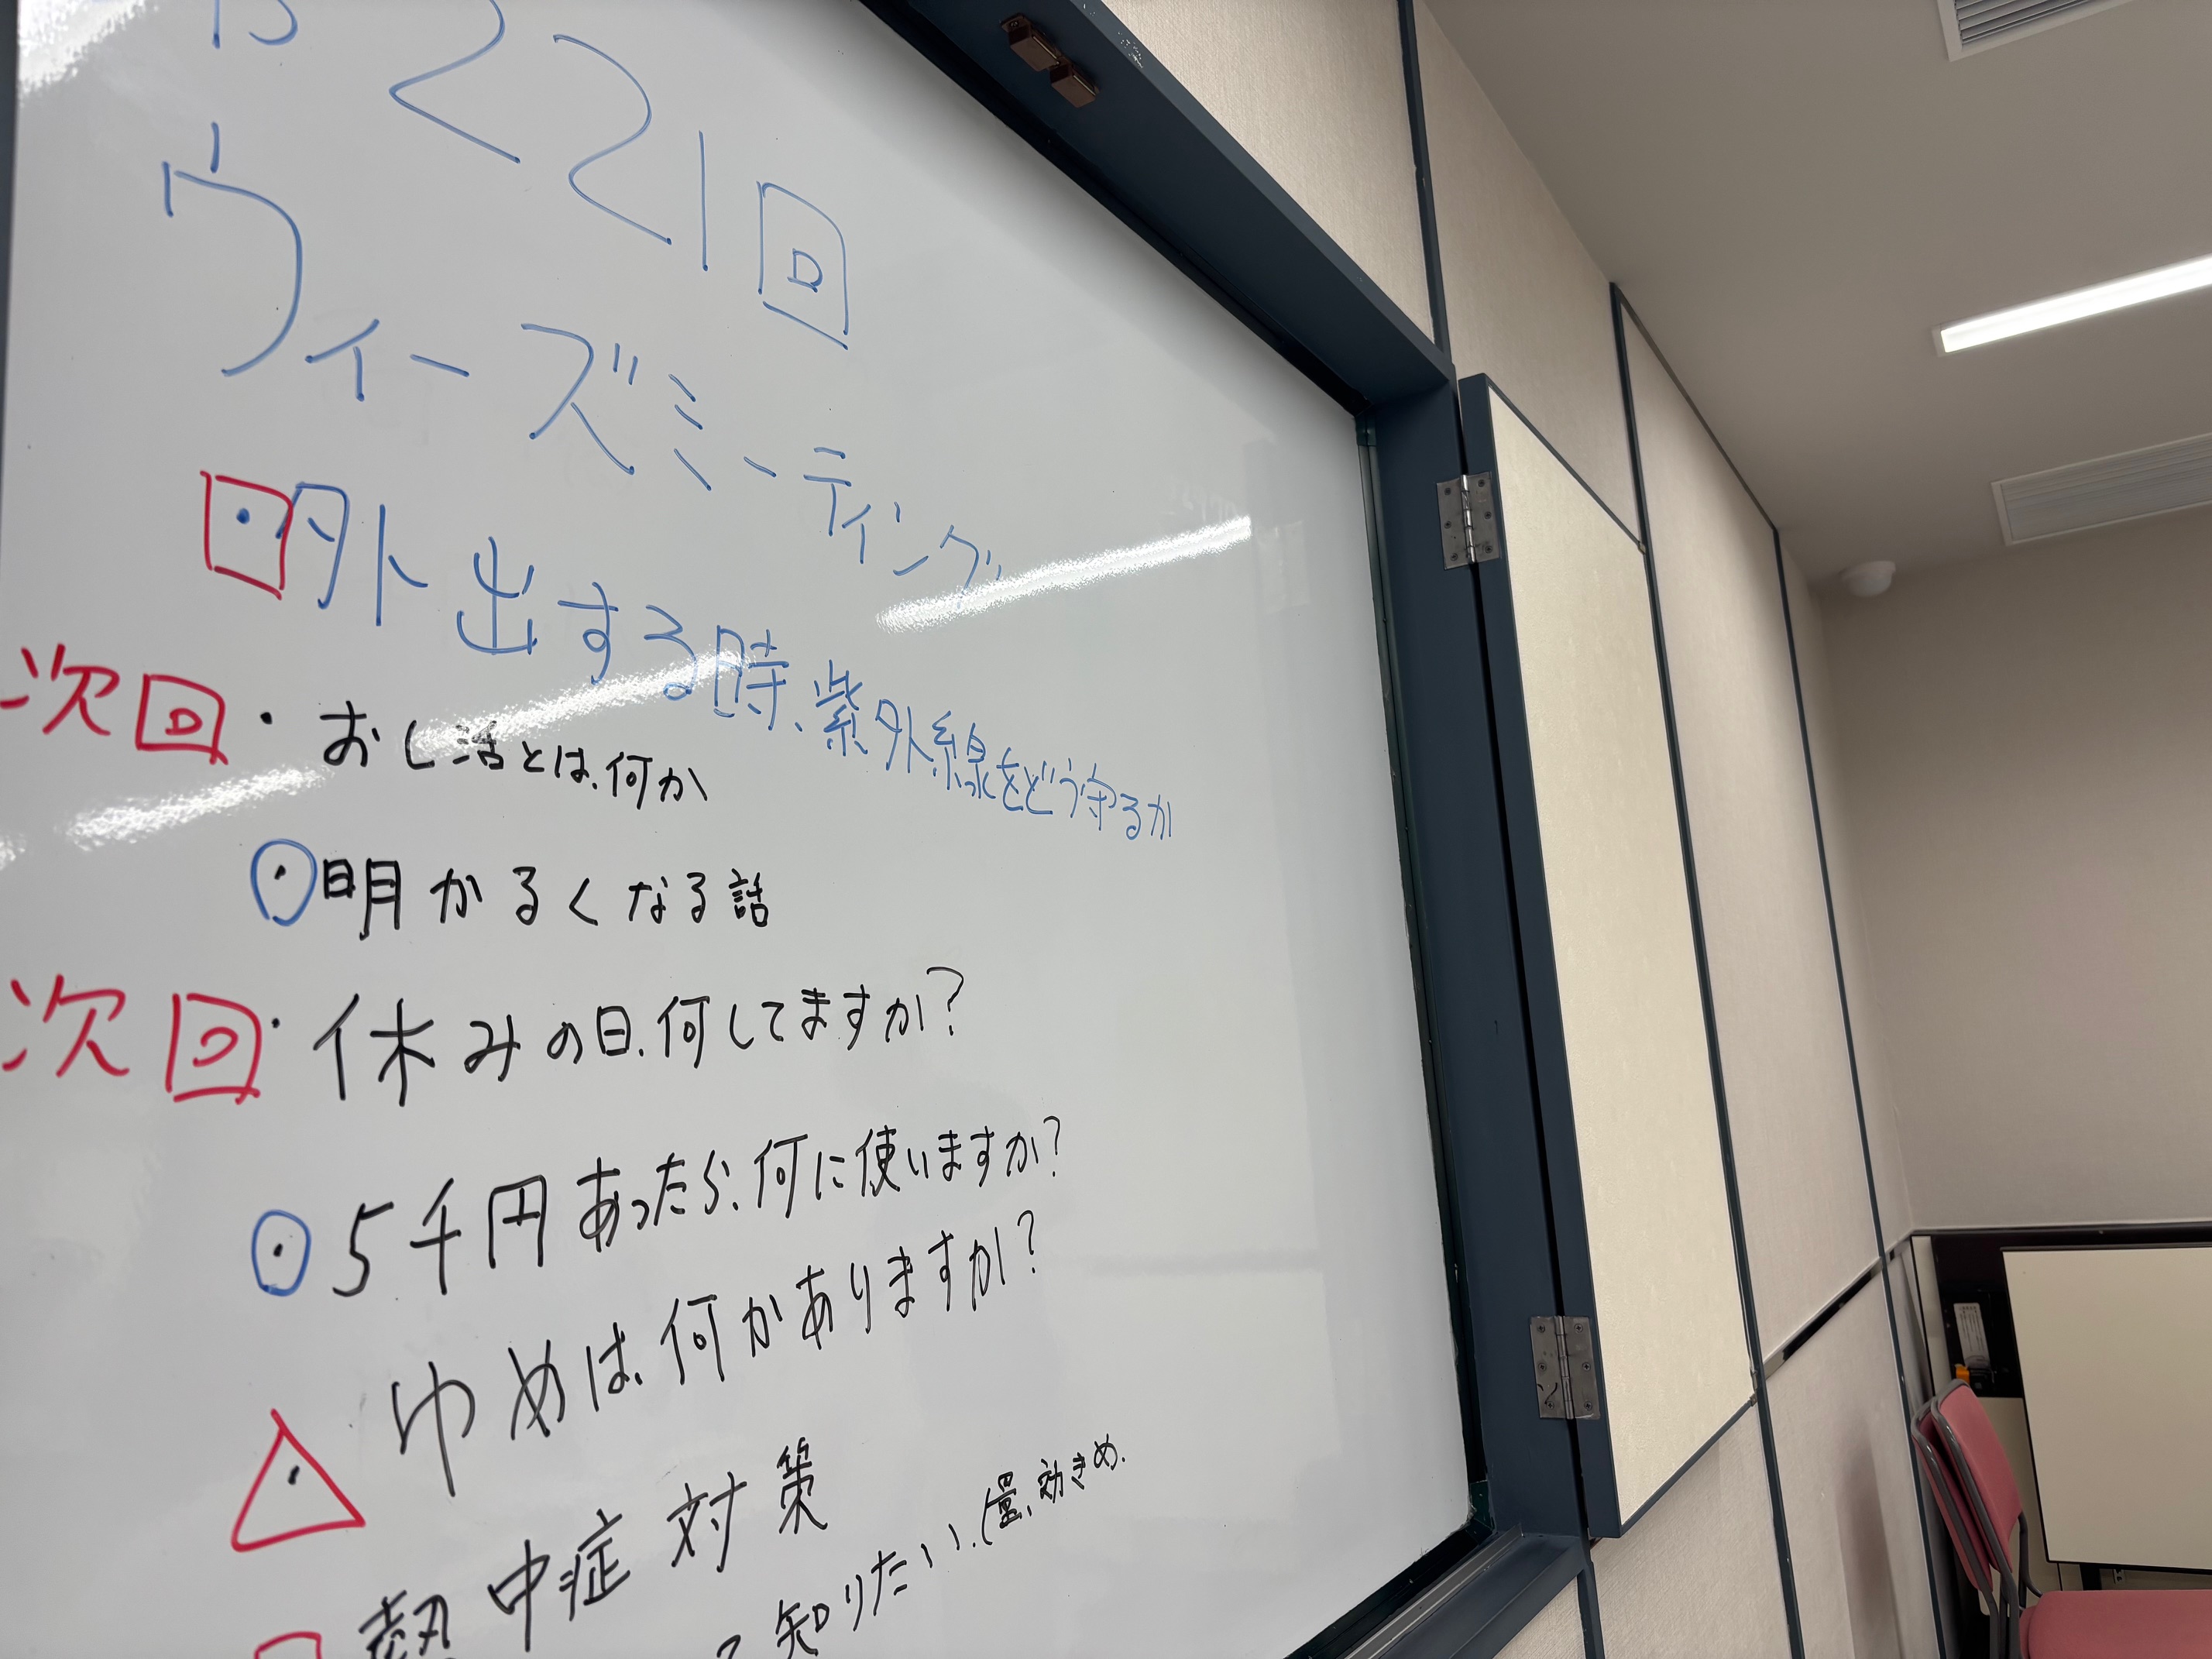 221回
ウィーズミーティング
・外出する時、紫外線をどう守るか
次回・おし活とは、何か
・明かるくなる話
次回・休みの日、何してますか?
・5千円あったら、何に使いますか?
・ゆめは、何がありますか?
熱中症対策
知りたい、(量、効きめ、